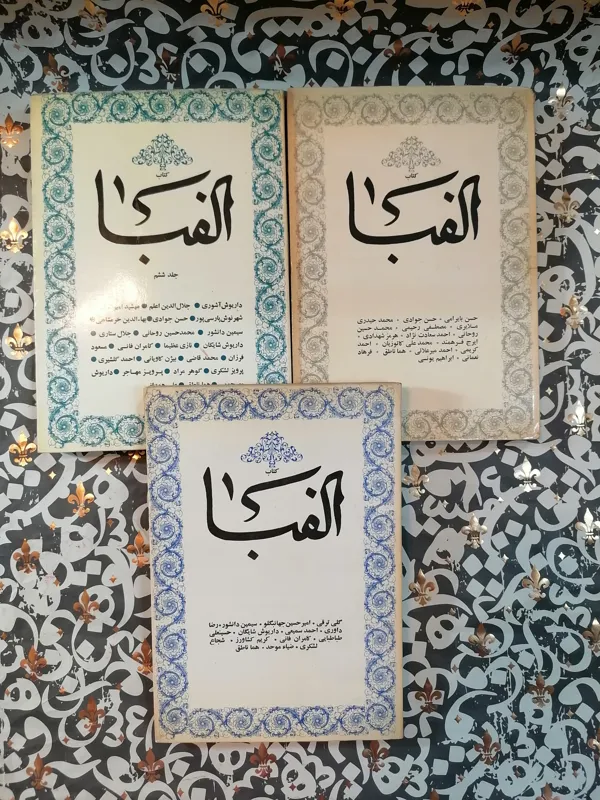 کتاب
الفبا
جلد ششم
داریوش آشوری • جلال‌الدین اعلم •
شهرنوش پارسی‌پور • حسن جوادی • بهاءالدین خرمشاهی •
سیمین دانشور • محمدحسین روحانی • جلال ستاری •
داریوش شایگان • نازی عظیما • کامران فانی • مسعود
فرزان • محمد قاضی • بیژن کاویانی • احمد گلشیری •
پرویز لشکری • گوهر مراد • پرویز مهاجر • داریوش
کتاب
الفبا
حسن بایرامی • حسن جوادی • محمد حیدری
ملایری • مصطفی رحیمی • محمدحسین
روحانی • احمد سعادت نژاد • هرمز شهدادی •
ایرج فرهمند • محمد علی کاتوزیان • احمد
کریمی • احمد میرعلائی • هما ناطق • فرهاد
نعمانی • ابراهیم یونسی
کتاب
الفبا
گلی ترقی • امیرحسین جهانبگلو • سیمین دانشور • رضا
داوری • احمد سمیعی • داریوش شایگان • حسینعلی
طباطبایی • کامران فانی • کریم کشاورز • شجاع
لشکری • ضیاء موحد • هما ناطق